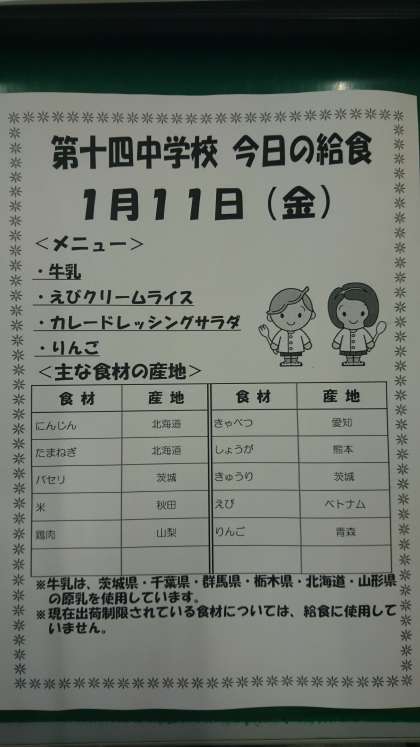 第十四中学校 今日の給食
1月11日（金）
＜メニュー＞
・牛乳
・えびクリームライス
・カレードレッシングサラダ
・りんご
＜主な食材の産地＞
食材 産地 食材 産地
にんじん 北海道 きゃべつ 愛知
たまねぎ 北海道 しょうが 熊本
パセリ 茨城 きゅうり 茨城
米 秋田 えび ベトナム
鶏肉 山梨 りんご 青森
※牛乳は、茨城県・千葉県・群馬県・栃木県・北海道・山形県
の原乳を使用しています。
※現在出荷制限されている食材については、給食に使用して
いません。